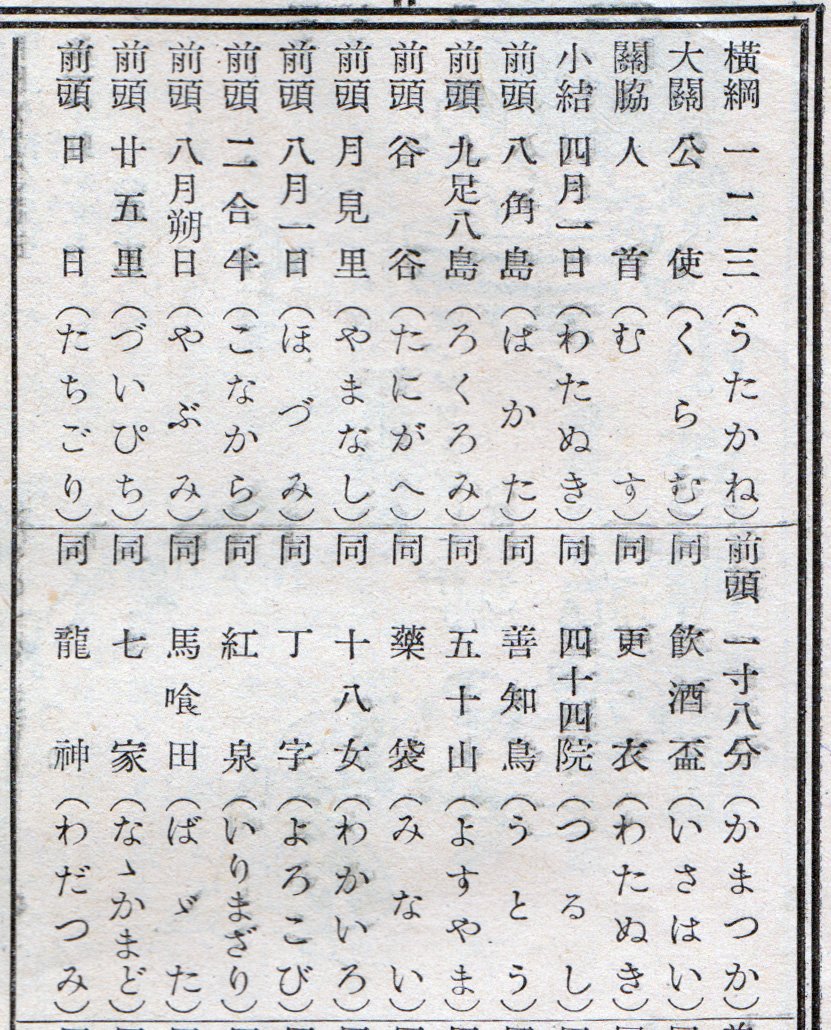 橫綱 一二三(うたかね)
大關 公使(くらむ)
關脇 人首(むす)
小結 四月一日(わたぬき)
前頭 八角島(はかた)
前頭 九足八島(ろくろみ)
前頭 谷谷(たにがへ)
前頭 月見里(やまなし)
前頭 八月一日(ほづみ)
前頭 二合半(こなから)
前頭 八月朔日(やぶみ)
前頭 廿五里(づいぴち)
前頭 日日(たちごり)
前頭 一寸八分(かまつか)
同 飮酒盃(いさはい)
同 更衣(わたぬき)
同 四十四院(つるし)
同 善知鳥(うとう)
同 五十山(よすやま)
同 藥袋(みない)
同 十八女(わかいろ)
同 丁字(よろこび)
同 紅泉(いりまざり)
同 馬喰田(ばゞた)
同 七家(なゝかまど)
同 龍神(わだつみ)